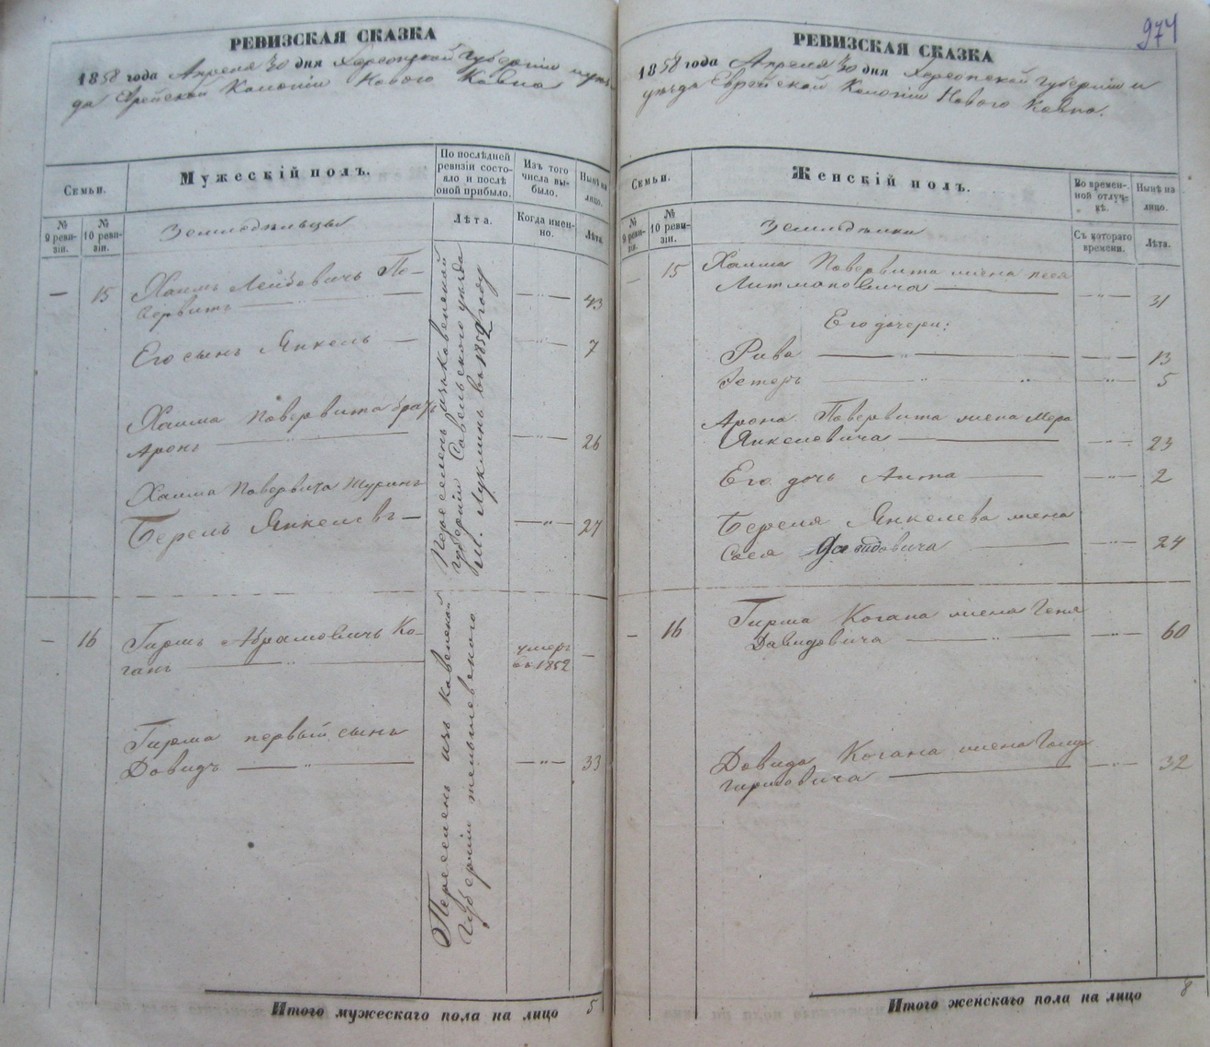 РЕВИЗСКАЯ СКАЗКА
1858 года Апреля 30 дня Херсонской Губернии и уѣз-
да Еврейской Колонiи Новаго Ковно
Семьи.
Мужескiй полъ.
По послѣдней ревизiи состояло и послѣ оной прибыло.
Изъ того числа выбыло.
Нынѣ на лицо.
№ 9 ревизiи.
№ 10 ревизiи.
Земледѣльцы
Лѣта.
Когда именно.
Лѣта.
— 15 Хаимъ Лейбовичъ По-
вервитъ — 43
Его сынъ Янкель — 7
Хаима Повервита братъ
Аронъ — 26
Хаима Повервита Шуринъ
Берель Янкелевъ — 27
Переселенъ изъ Ковенской
губернiи Савельскаго уѣзда
въ 1852 году
— 16 Гиршъ Абрамовичъ Ко-
ганъ умеръ
въ 1852 —
Гирша первый сынъ
Довидъ — 33
Переселенъ изъ Ковенской
Губернiи тельшевскаго
Итого мужескаго пола на лицо 5
974
РЕВИЗСКАЯ СКАЗКА
1858 года Апреля 30 дня Херсонской Губернiи и
уѣзда Еврейской Колонiи Новаго Ковно.
Семьи.
Женскiй полъ.
Во временной отлучкѣ.
Нынѣ на лицо.
№ 9 ревизiи.
№ 10 ревизiи.
Земледѣлки
Съ котораго времени.
Лѣта.
— 15 Хаима Повервита жена Песя
Литмановича — 31
Его дочери:
Рива — 13
Эстеръ — 5
Арона Повервита жена Мера
Янкелевича — 23
Его дочь Анта — 2
Береля Янкелева жена
Сося Давидовича — 24
— 16 Гирша Когана жена Геня
Давидовича — 60
Довида Когана жена
Гиршовича — 32
Итого женскаго пола на лицо 8